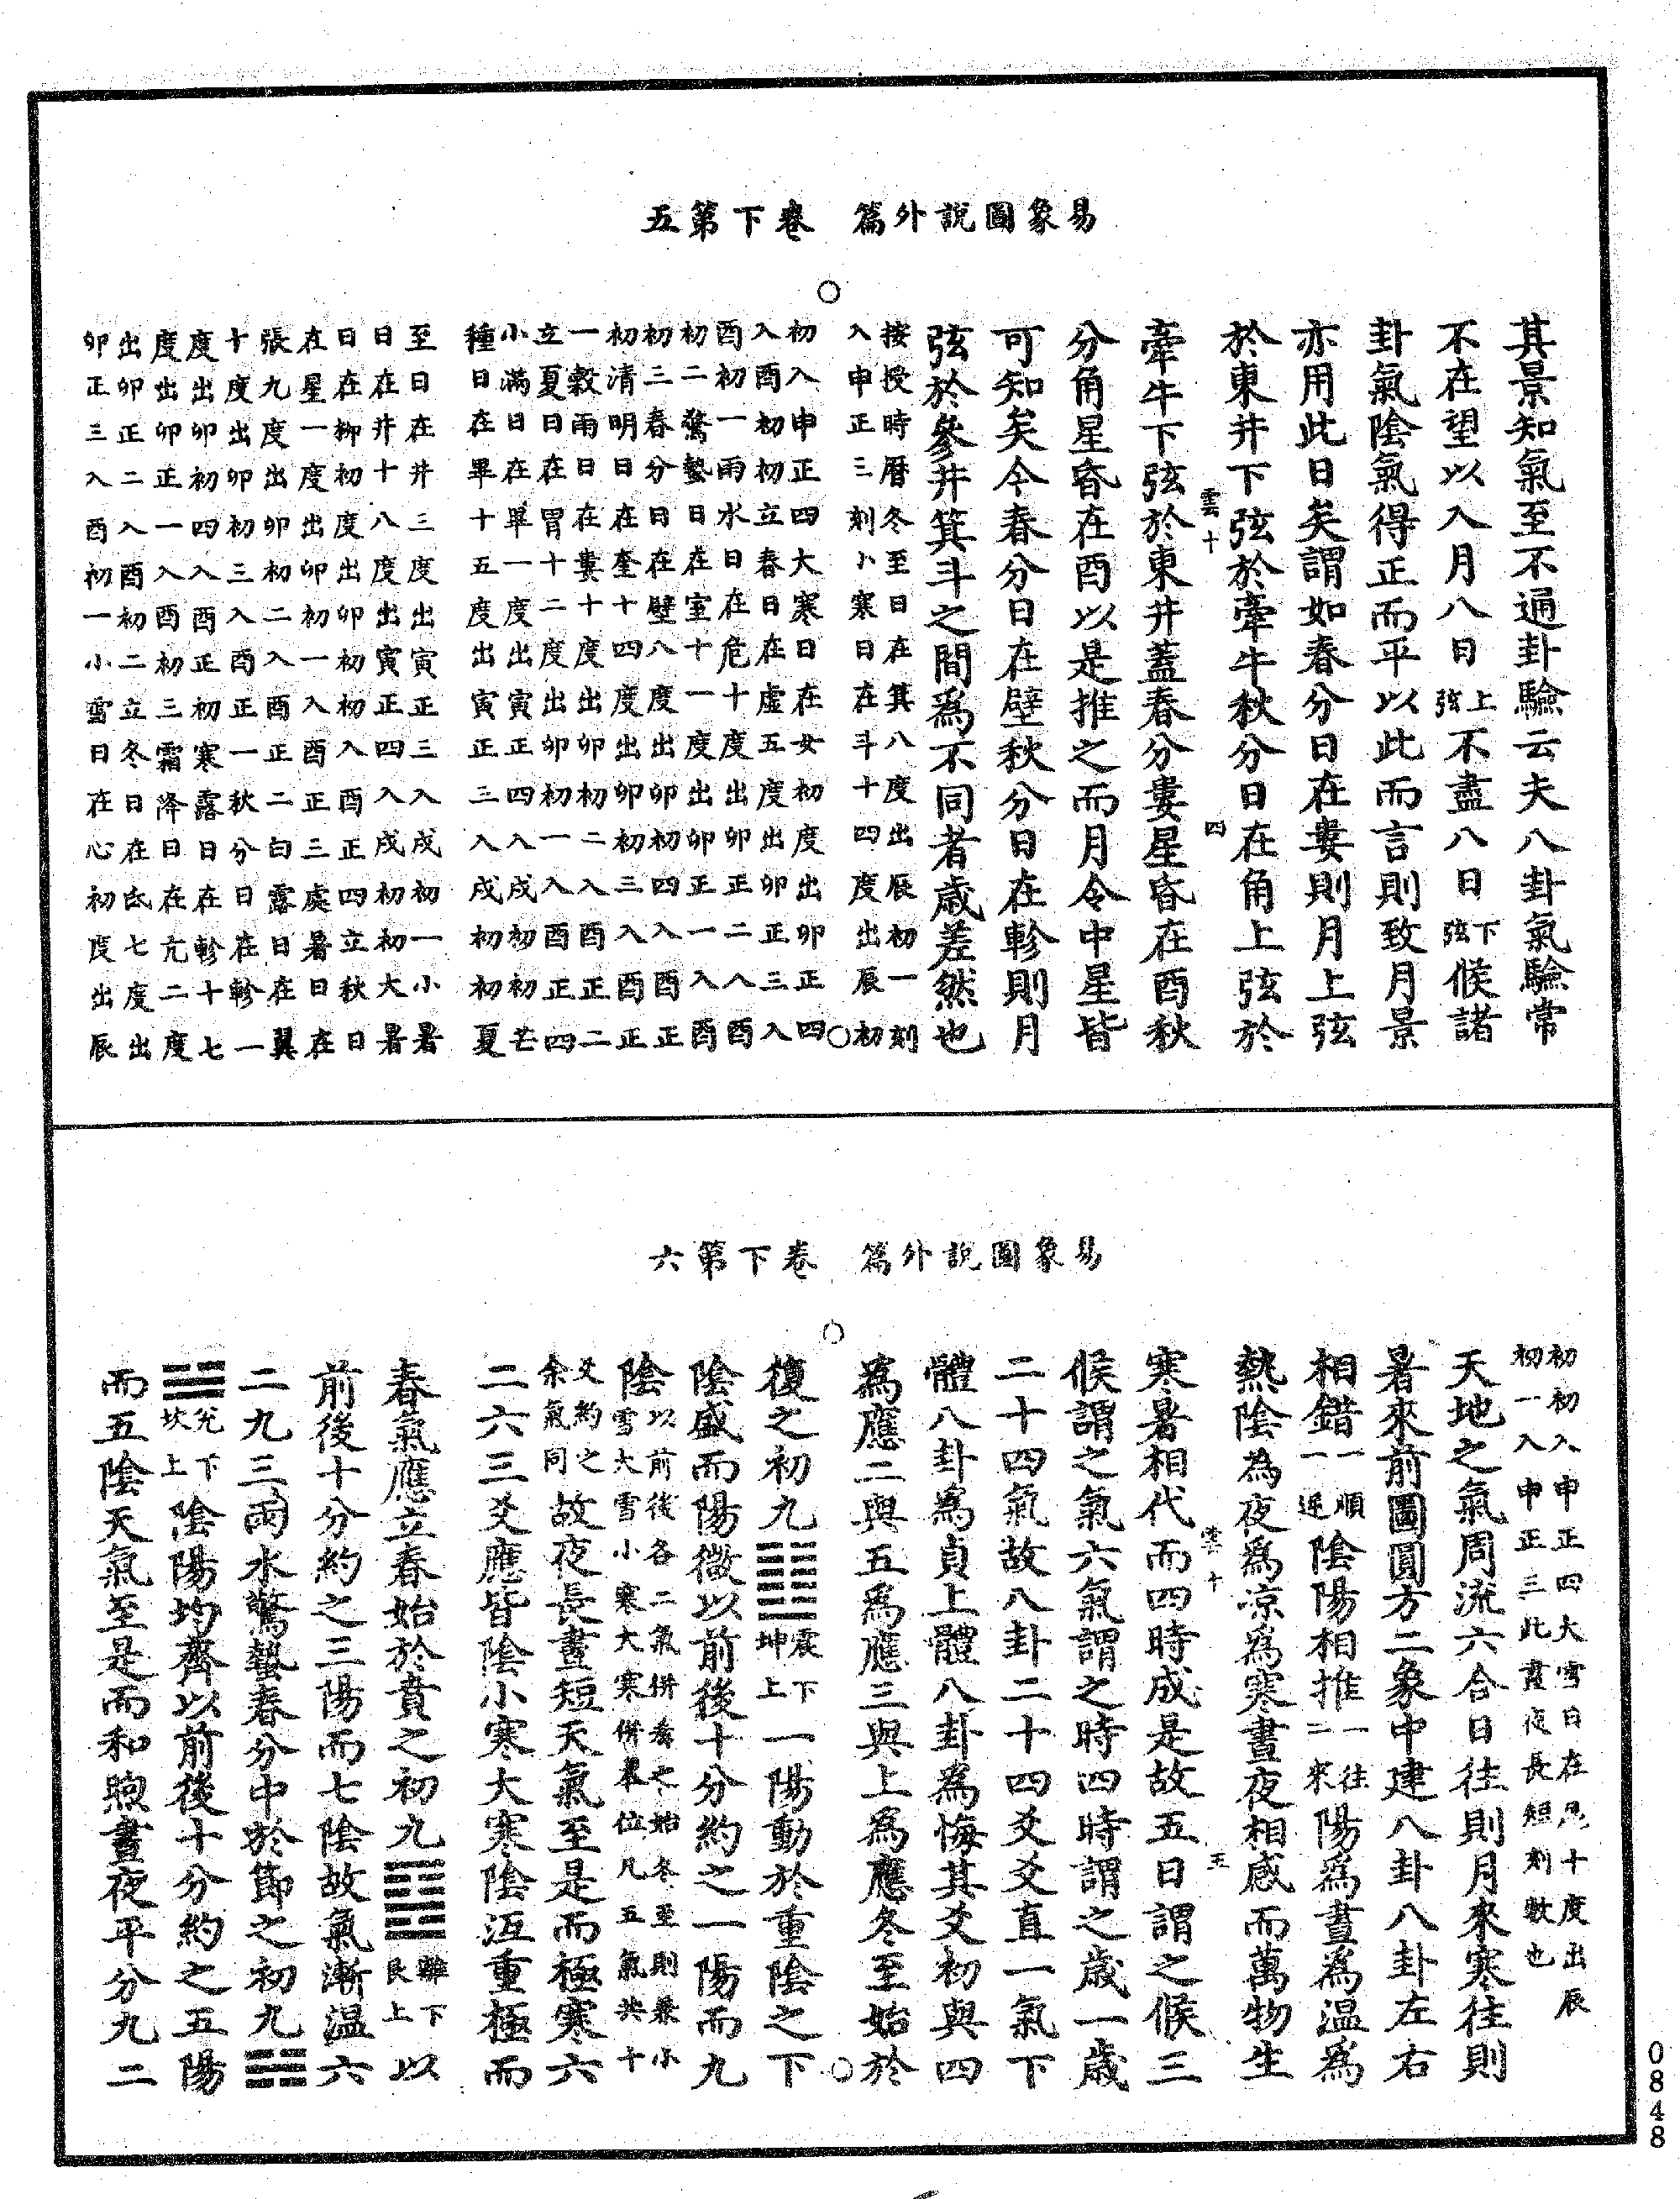 易象圖說外篇　卷下第五
其景知氣至不通卦驗云夫八卦氣驗常
不在望以入月八日上弦不盡八日下弦候諸
卦氣陰氣得正而平以此而言則致月景
亦用此日矣謂如春分日在婁則月上弦
於東井下弦於牽牛秋分日在角上弦於
雲十　四
牽牛下弦於東井蓋春分婁星昏在酉秋
分角星昏在酉以是推之而月令中星皆
可知矣今春分日在壁秋分日在軫則月
弦於參井箕斗之間為不同者歲差然也
按授時曆冬至日在箕八度出辰初一刻
入申正三刻小寒日在斗十四度出辰初
初入申正四大寒日在女初度出卯正四
入酉初初立春日在虛五度出卯正三入
酉初一雨水日在危十度出卯正二入酉
初二驚蟄日在室十一度出卯正一入酉
初三春分日在壁八度出卯初四入酉正
初清明日在奎十四度出卯初三入酉正
一穀雨日在婁十度出卯初二入酉正二
立夏日在胃十二度出卯初一入酉正四
小滿日在畢一度出寅正四入戌初初芒
種日在畢十五度出寅正三入戌初初夏
至日在井三度出寅正三入戌初一小暑
日在井十八度出寅正四入戌初初大暑
日在柳初度出卯初初入酉正四立秋日
在星一度出卯初一入酉正三處暑日在
張九度出卯初二入酉正二白露日在翼
十度出卯初三入酉正一秋分日在軫一
度出卯初四入酉正初寒露日在軫十七
度出卯正一入酉初三霜降日在亢二度
出卯正二入酉初二立冬日在氐七度出
卯正三入酉初一小雪日在心初度出辰
易象圖說外篇　卷下第六
初初入申正四大雪日在尾十度出辰
初一入申正三此晝夜長短刻數也
天地之氣周流六合日往則月來寒往則
暑來前圖圓方二象中建八卦八卦左右
相錯一順一逆陰陽相推一往一來陽為晝為温為
熱陰為夜為涼為寒晝夜相感而萬物生
雲十　五
寒暑相代而四時成是故五日謂之候三
候謂之氣六氣謂之時四時謂之歲一歲
二十四氣故八卦二十四爻爻直一氣下
體八卦為貞上體八卦為悔其爻初與四
為應二與五為應三與上為應冬至始於
復之初九䷗震下坤上一陽動於重陰之下
陰盛而陽微以前後十分約之一陽而九
陰以前後各二氣併為之始冬至則兼小雪大雪小寒大寒併本位凡五氣共十爻約之余氣同故夜長晝短天氣至是而極寒六
二六三爻應皆陰小寒大寒陰沍重極而
春氣應立春始於賁之初九䷕離下艮上以
前後十分約之三陽而七陰故氣漸温六
二九三雨水驚蟄春分中於節之初九䷻
兌下坎上陰陽均齊以前後十分約之五陽
而五陰天氣至是而和煦晝夜平分九二
0848